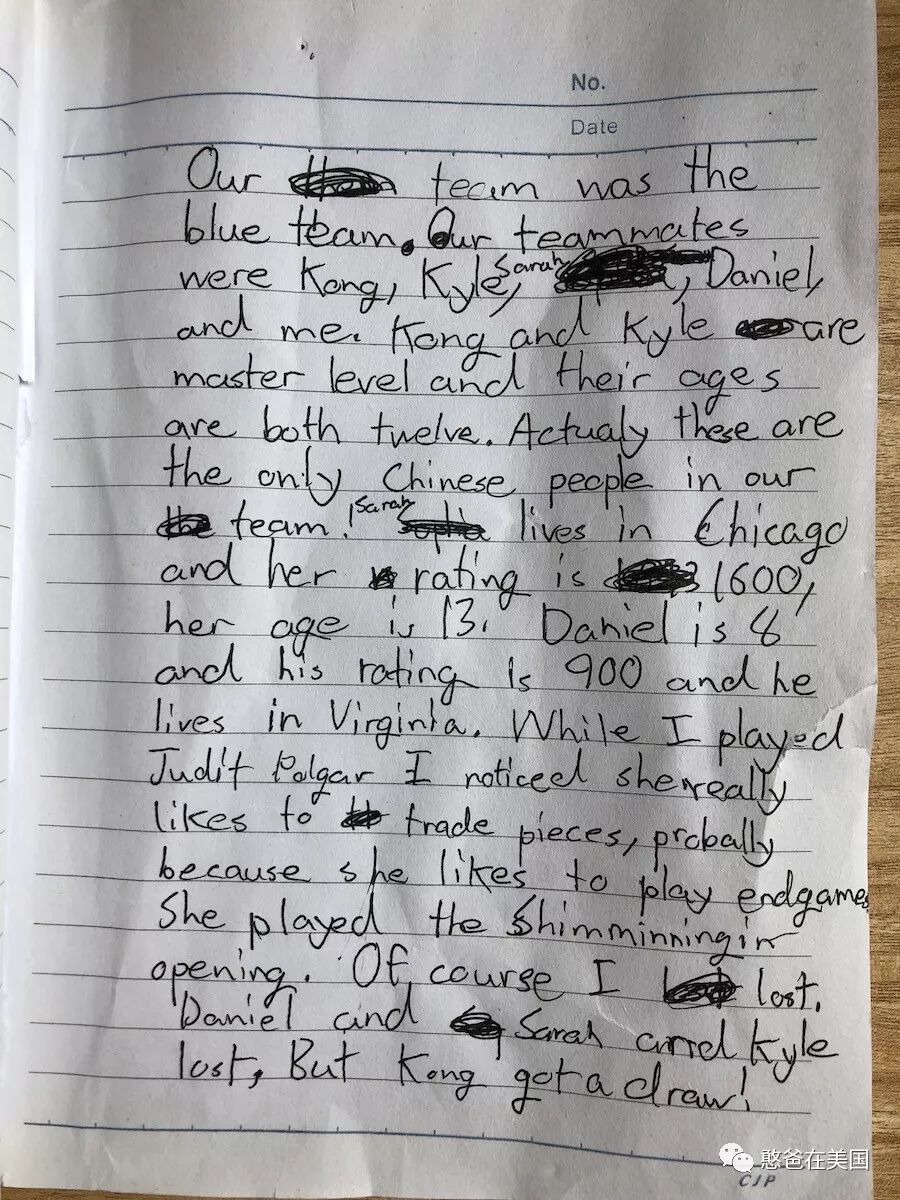 No.
Date
Our team was the
blue team. Our teammates
were Kong, Kyle, Sarah, Daniel,
and me. Kong and Kyle are
master level and their ages
are both twelve. Actualy these are
the only Chinese people in our
team! Sarah lives in Chicago
and her rating is 1600,
her age is 13. Daniel is 8
and his rating is 900 and he
lives in Virginia. While I played
Judit Polgar I noticed she really
likes to trade pieces, probally
because she likes to play endgames
She played the Shimminningin
opening. Of course I lost.
Daniel and Sarah and Kyle
lost, But Kong got a draw!
憨爸在美国
CJP